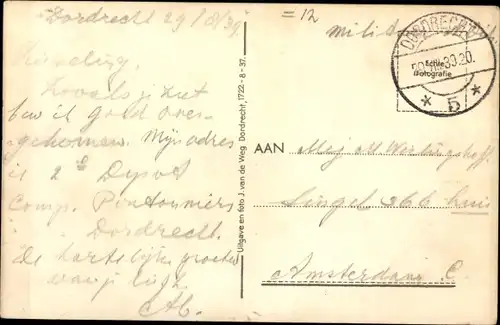 Dordrecht 29/8/39
Zooals je ziet
ben ik goed over-
gekomen. Mijn adres
is 2e Depot
Comp. Pontonniers
Dordrecht.
De hartelijke groeten
van je
Uitgave en foto J. van de Weg Dordrecht, 1722-8-37.
= 12
DORDRECHT
Echte
Fotografie
* 5 *
AAN Mej.
Singel 366 huis
Amsterdam C.